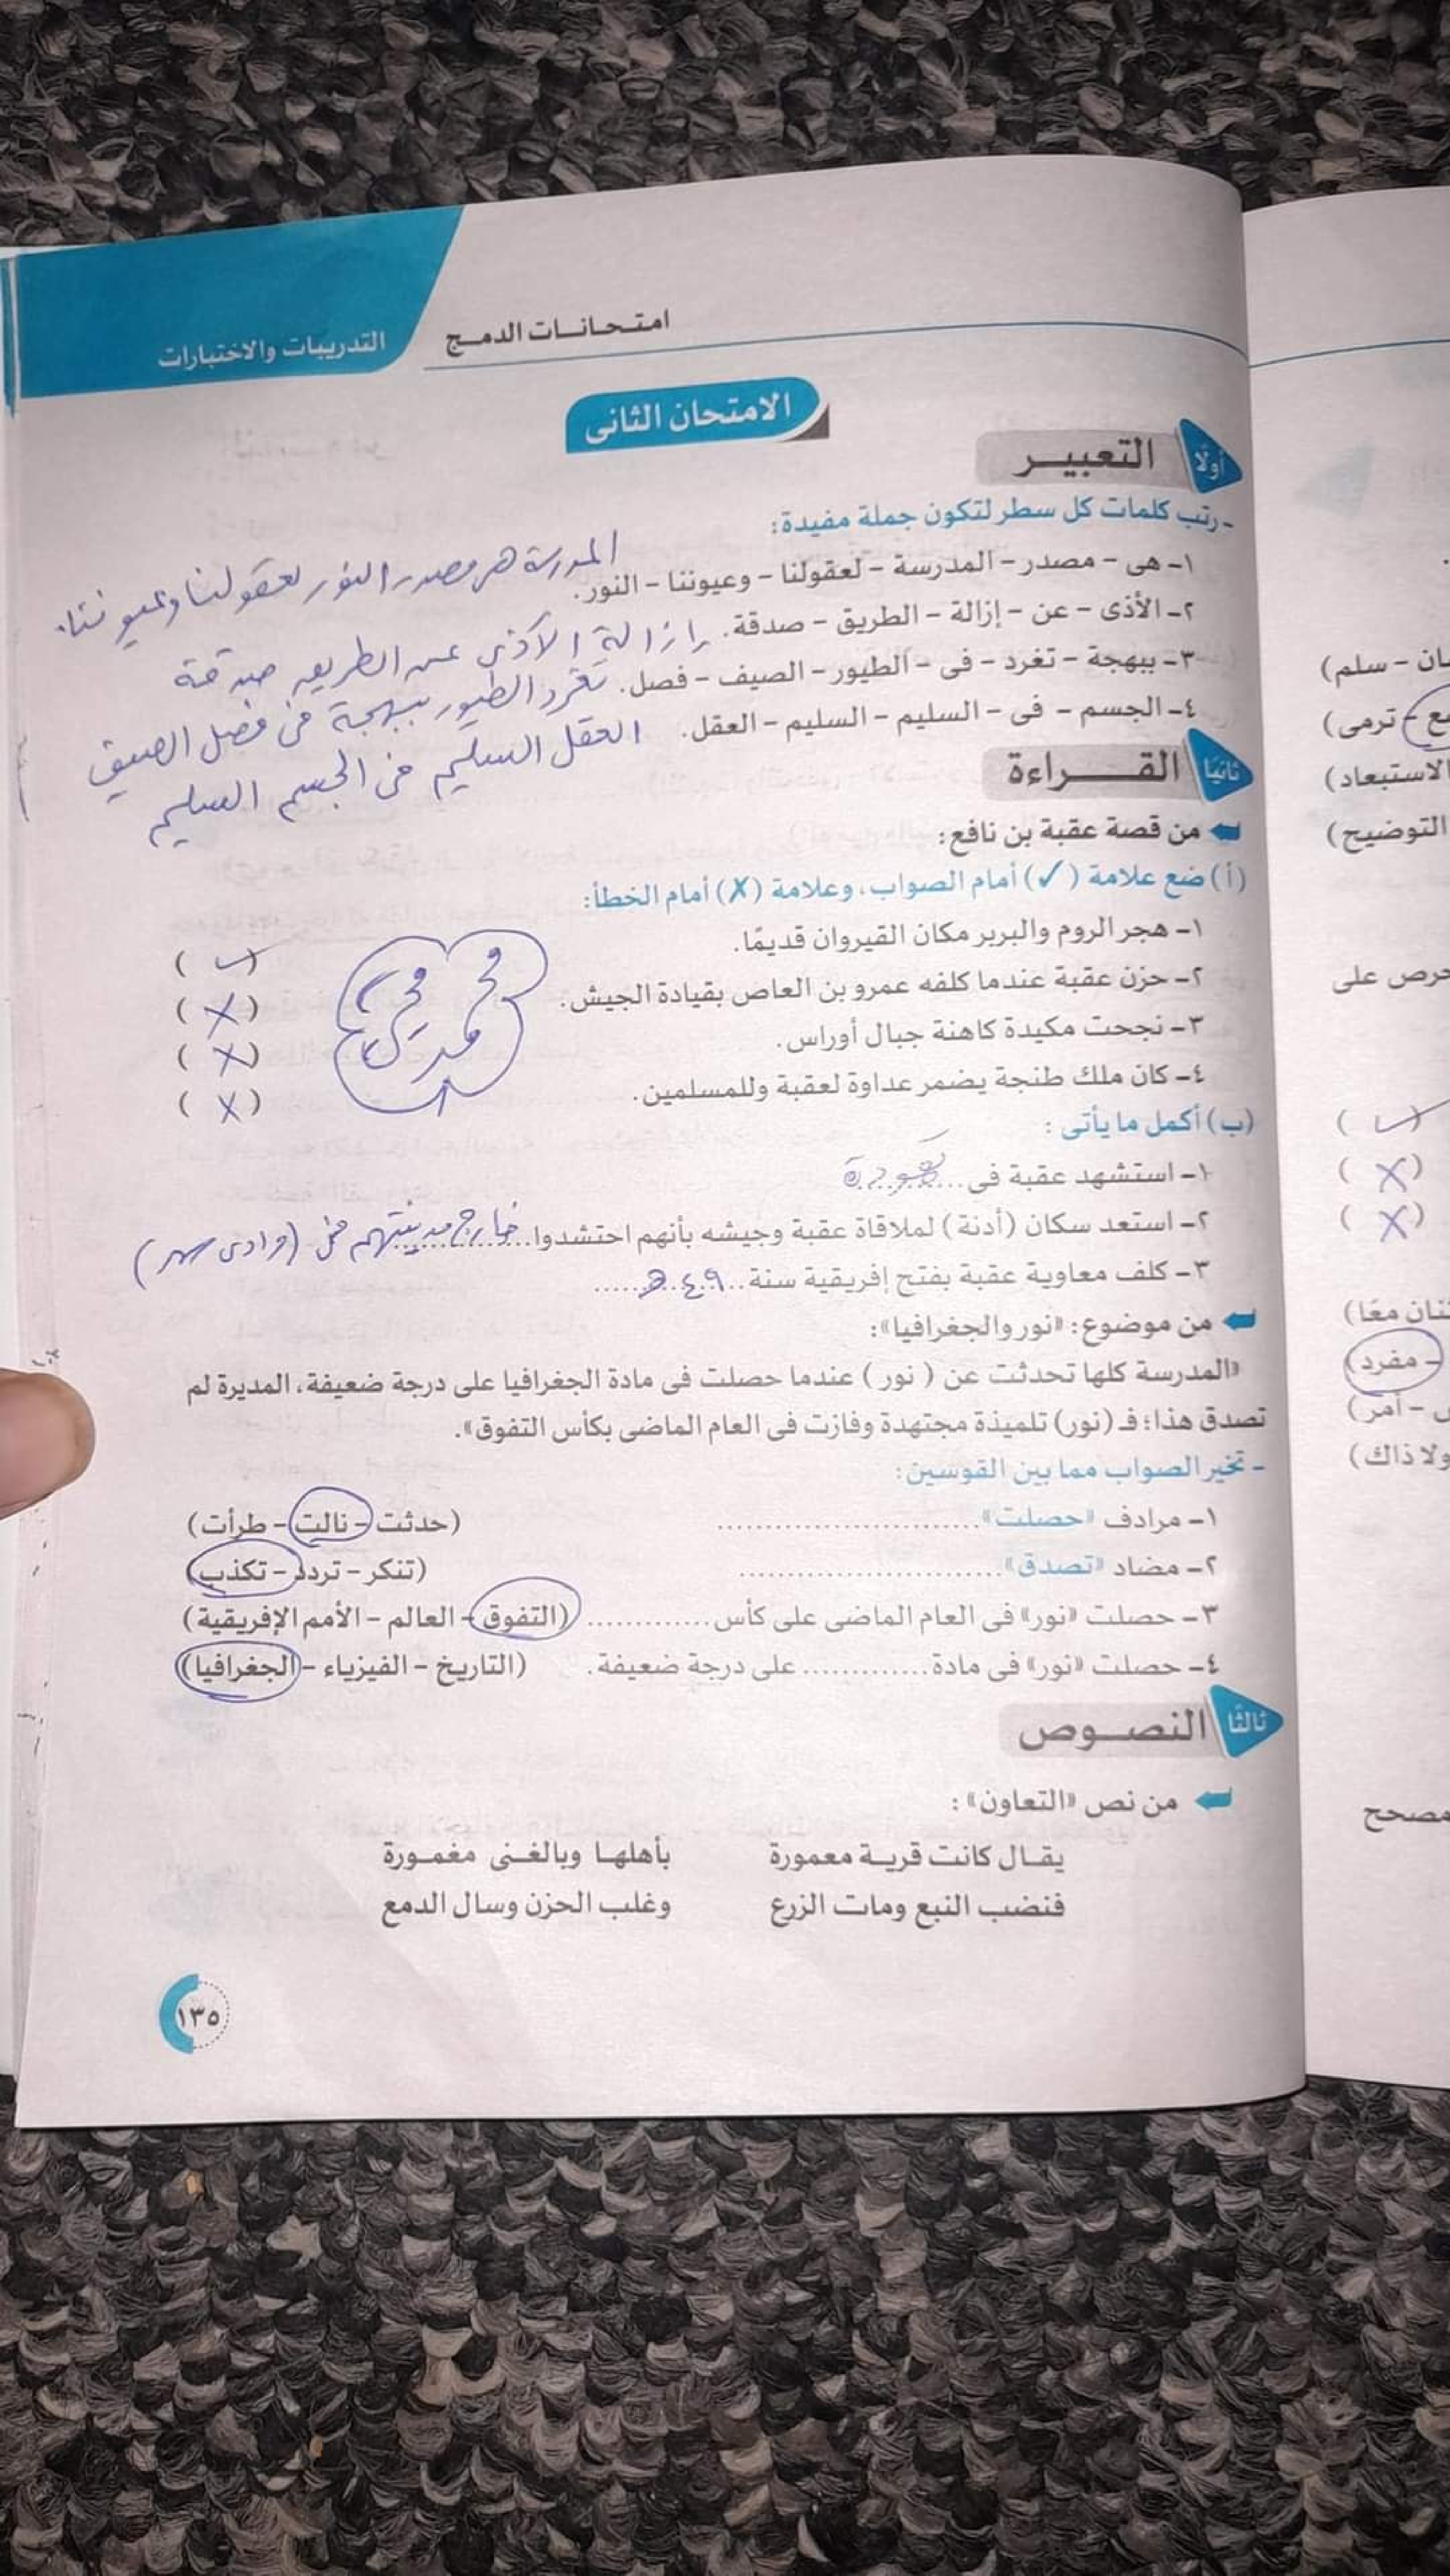 امتحانات الدمج
التدريبات والاختبارات
الامتحان الثانى
أولًا التعبير
- رتب كلمات كل سطر لتكون جملة مفيدة:
١- هى - مصدر - المدرسة - لعقولنا - وعيوننا - النور. المدرسة هى مصدر النور لعقولنا وعيوننا.
٢- الأذى - عن - إزالة - الطريق - صدقة. إزالة الأذى عن الطريق صدقة
٣- ببهجة - تغرد - فى - الطيور - الصيف - فصل. تغرد الطيور ببهجة فى فصل الصيف
٤- الجسم - فى - السليم - السليم - العقل. العقل السليم فى الجسم السليم
ثانيًا القراءة
من قصة عقبة بن نافع:
(أ) ضع علامة (✓) أمام الصواب، وعلامة (✗) أمام الخطأ:
١- هجر الروم والبربر مكان القيروان قديمًا. (✓)
٢- حزن عقبة عندما كلفه عمرو بن العاص بقيادة الجيش. (✗)
٣- نجحت مكيدة كاهنة جبال أوراس. (✗)
٤- كان ملك طنجة يضمر عداوة لعقبة وللمسلمين. (✗)
(ب) أكمل ما يأتى:
١- استشهد عقبة فى ... تهودة
٢- استعد سكان (أدنة) لملاقاة عقبة وجيشه بأنهم احتشدوا خارج مدينتهم فى (وادى سهر)
٣- كلف معاوية عقبة بفتح إفريقية سنة ٤٩ هـ
من موضوع: «نور والجغرافيا»:
«المدرسة كلها تحدثت عن (نور) عندما حصلت فى مادة الجغرافيا على درجة ضعيفة، المديرة لم
تصدق هذا؛ فـ (نور) تلميذة مجتهدة وفازت فى العام الماضى بكأس التفوق».
- تخير الصواب مما بين القوسين:
١- مرادف «حصلت» ............ (حدثت - نالت - طرأت)
٢- مضاد «تصدق» ............ (تنكر - تردد - تكذب)
٣- حصلت «نور» فى العام الماضى على كأس ............ (التفوق - العالم - الأمم الإفريقية)
٤- حصلت «نور» فى مادة ............ على درجة ضعيفة. (التاريخ - الفيزياء - الجغرافيا)
ثالثًا النصوص
من نص «التعاون»:
يقال كانت قرية معمورة بأهلها وبالغنى مغمورة
فنضب النبع ومات الزرع وغلب الحزن وسال الدمع
١٣٥
ـان - سلم)
ـع - ترمى)
الاستبعاد)
التوضيح)
حرص على
(✓)
(✗)
(✗)
ـنان معًا)
- مفرد)
- أمر)
ولا ذاك)
مصحح